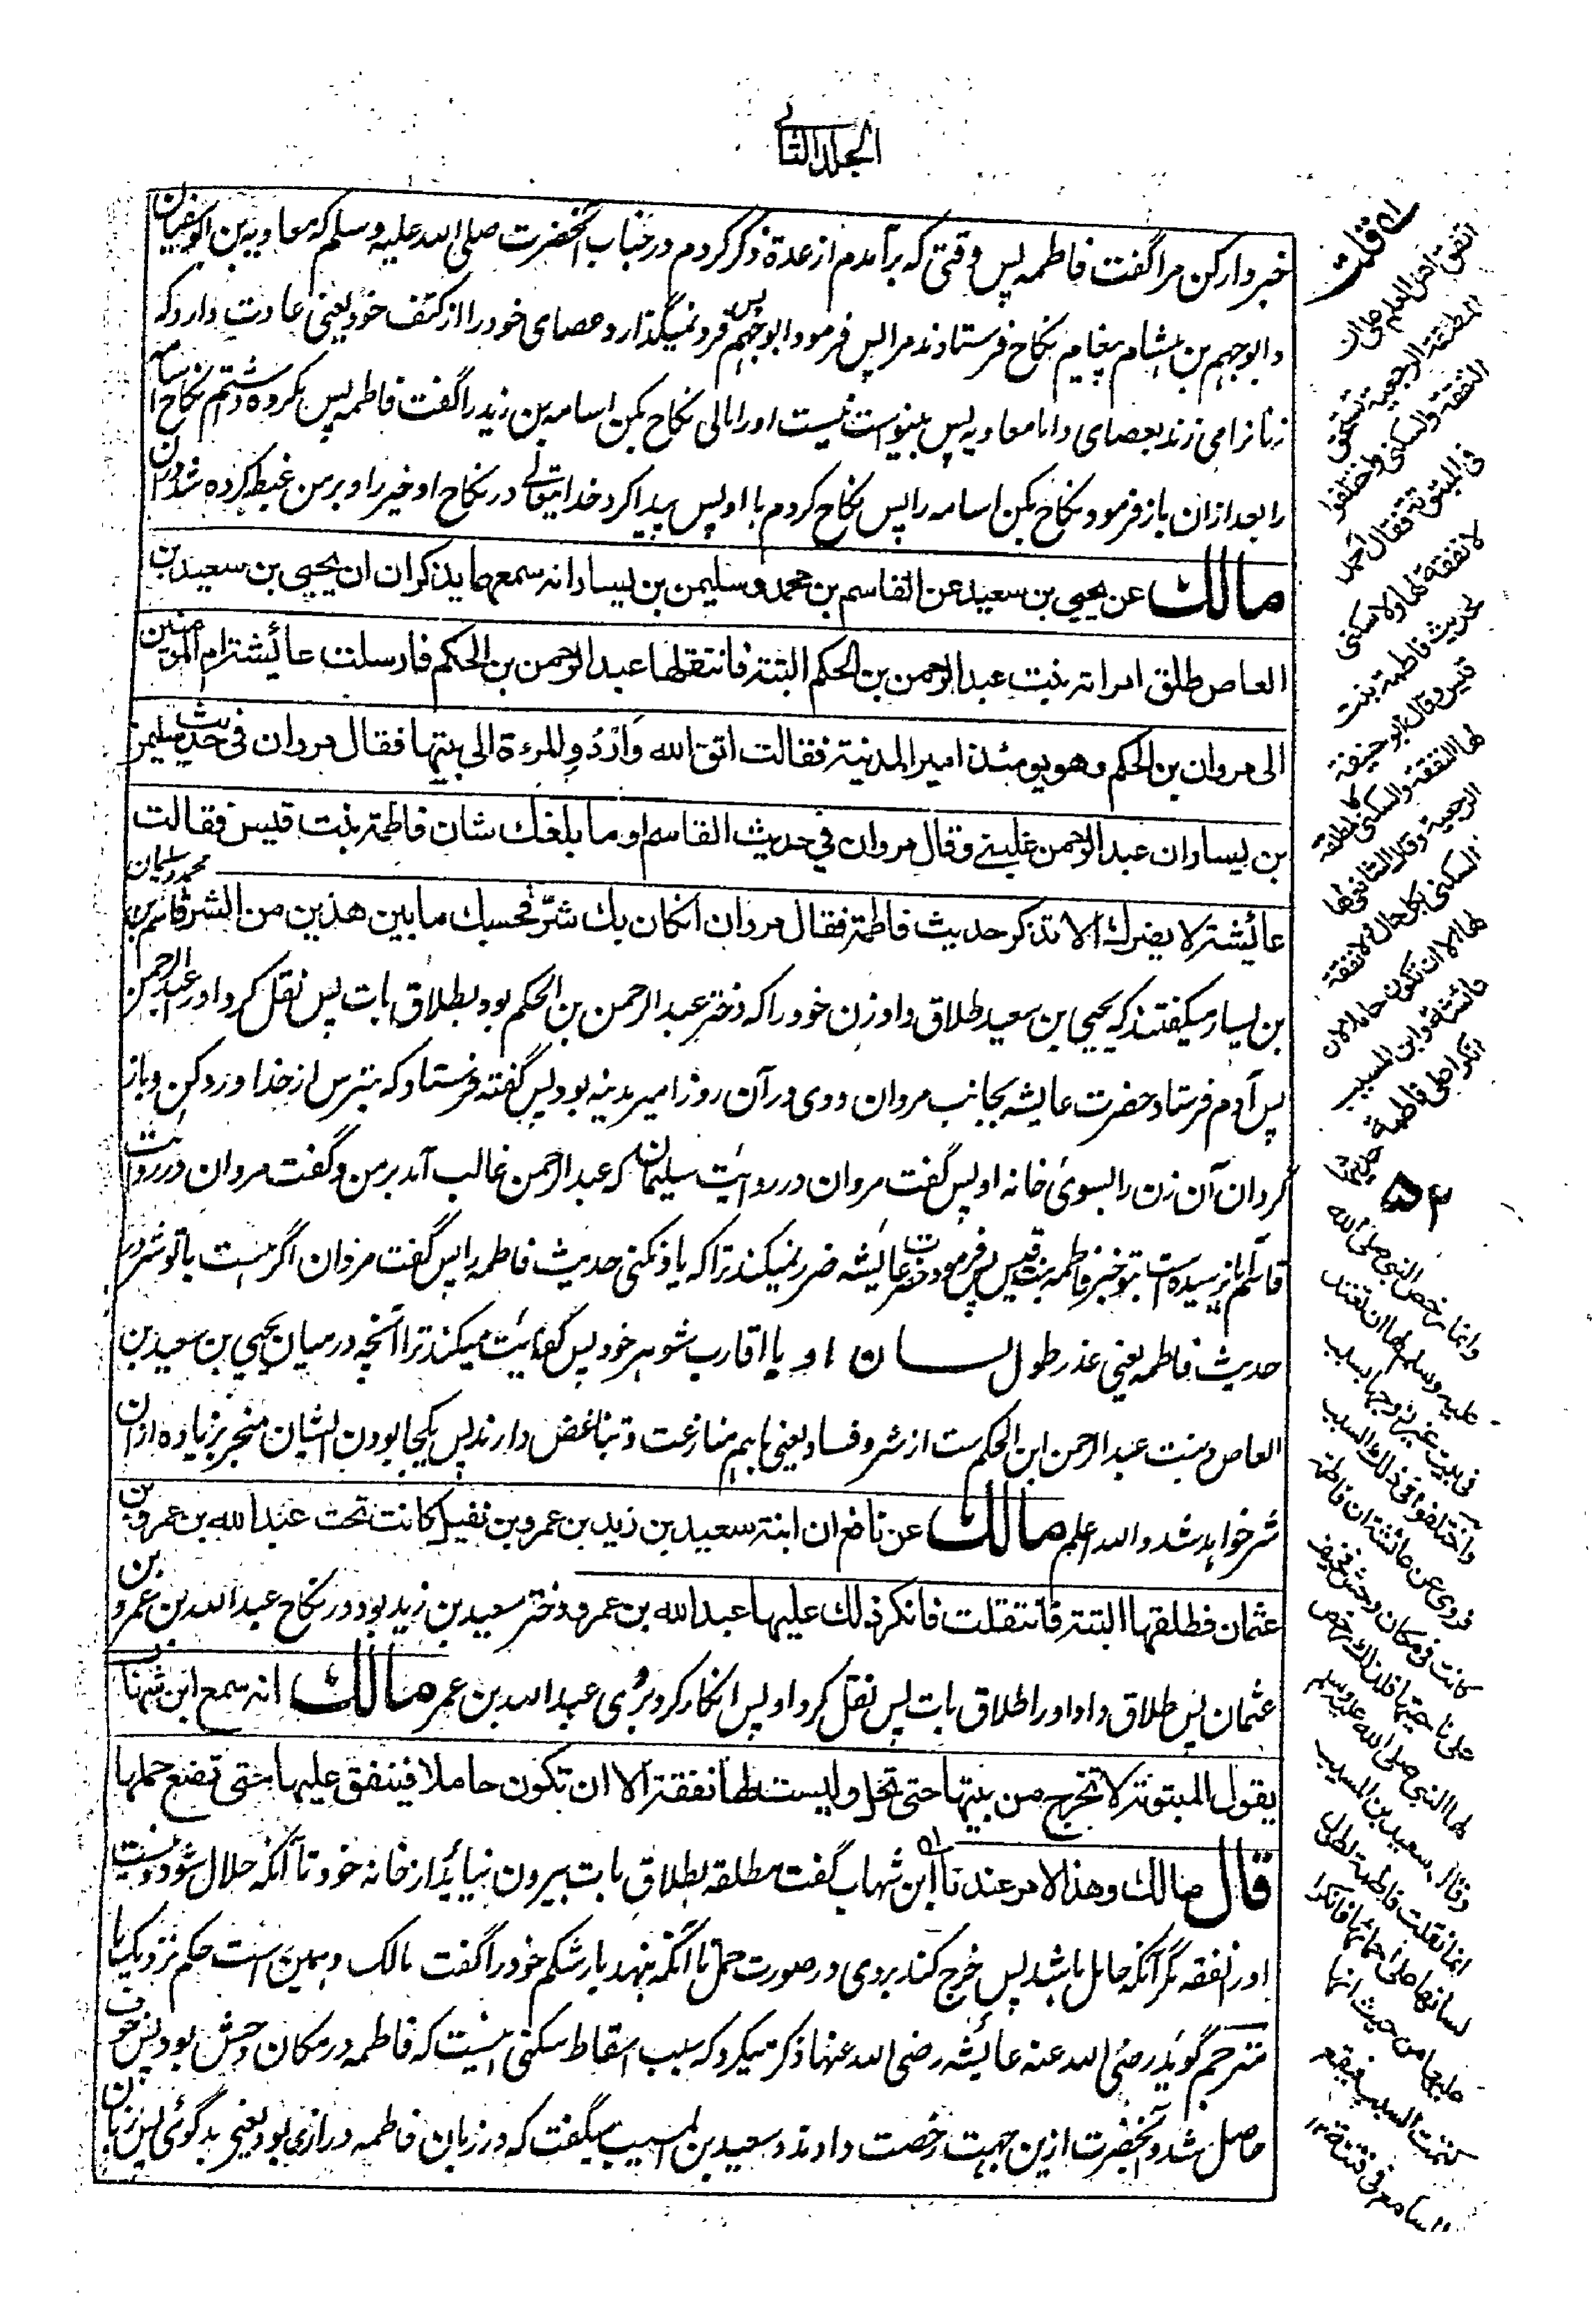 الجلد الثانی
خبردار کن مرا گفت فاطمہ پس وقتی کہ برآمدم از عدة ذکر کردم در جناب آنحضرت صلی اللہ علیہ وسلم کہ معاویہ بن ابوسفیان
و ابوجہم بن ہشام پیغام نکاح فرستادند مرا پس فرمود ابوجہم پس فرو نمیگذارد عصای خود را از کتف خود یعنی عادت دارد کہ
زنانرا می زند بعصای و اما معاویہ پس بینواست نیست اورا مالی نکاح بکن اسامہ بن زید را گفت فاطمہ پس مکروہ داشتم نکاح اسامہ
را بعد ازان باز فرمود نکاح بکن اسامہ را پس نکاح کردم با او پس پیدا کرد خدایتعالے در نکاح او خیر را و بر من غبطہ کردہ شد دران
مالك عن يحيي بن سعيد عن القاسم بن محمد و سليمن بن يسار انه سمعهما يذكران ان يحيي بن سعيد بن
العاص طلق امراته بنت عبد الرحمن بن الحكم البتة فانتقلها عبد الرحمن بن الحكم فارسلت عائيشة ام المومنين
الى مروان بن الحكم وهو يومئذ امير المدينة فقالت اتق الله وَارْدُدِ المرءة الى بيتها فقال مروان في حديث سليمن
بن يسار ان عبد الرحمن غلبني وقال مروان في حديث القاسم او ما بلغك شان فاطمة بنت قيس فقالت
عائيشة لا يضرك الا تذكر حديث فاطمة فقال مروان انكان بك شرّ فحسبك ما بين هذين من الشر قاسم بن محمد و سلیمان
بن یسار میگفتند کہ یحیی بن سعید طلاق داد زن خود را کہ دختر عبد الرحمن بن الحکم بود بطلاق بات پس نقل کرد اورا عبد الرحمن
پس آدم فرستاد حضرت عایشہ بجانب مروان و وی در آن روز امیر مدینہ بود پس گفتہ فرستاد کہ بترس از خدا و رد کن و باز
گردان آن زن را بسوئ خانہ او پس گفت مروان در روایت سلیمان کہ عبد الرحمن غالب آمد بر من و گفت مروان در روایت
قاسم آیا نرسیدہ است بتو خبر فاطمہ بنت قیس پس فرمود حضرت عائیشہ ضرر نمیکند ترا کہ یاد نکنی حدیث فاطمہ را پس گفت مروان اگر ہست با تو شر در
حدیث فاطمہ یعنی عذر طول لسان او با اقارب شوہر خود پس کفایت میکند ترا آنچہ در میان یحیی بن سعید بن
العاص و بنت عبد الرحمن ابن الحکم ست از شر و فساد یعنی باہم منازعت و تباغض دارند پس یکجا بودن ایشان منجر بزیادہ ازان
شر خواہد شد واللہ اعلم مالك عن نافع ان ابنة سعيد بن زيد بن عمرو بن نفيل كانت تحت عبد الله بن عمرو بن
عثمان فطلقها البتة فانتقلت فانكر ذلك عليها عبد الله بن عمر دختر سعید بن زید بود در نکاح عبد اللہ بن عمرو بن
عثمان پس طلاق داد اورا طلاق بات پس نقل کرد او پس انکار کرد بر وی عبد اللہ بن عمر مالك انه سمع ابن شهاب
يقول المبتوتة لا تخرج من بيتها حتى تحل وليست لها نفقة الا ان تكون حاملا فينفق عليها حتى تضع حملها
قال مالك وهذا الامر عندنا ابن شہاب گفت مطلقہ بطلاق بات بیرون نیاید از خانہ خود تا آنکہ حلال شود و نیست
اورا نفقہ مگر آنکہ حامل باشد پس خرج کند بر وی در صورت حمل تا آنکہ بنہد بار شکم خود را گفت مالک و ہمین ست حکم نزدیک ما
مترجم گوید رضی اللہ عنہ عائیشہ رضی اللہ عنہا ذکر میکرد کہ سبب اسقاط سکنی اینست کہ فاطمہ در مکان وحش بود پس خوف
حاصل شد و آنحضرت ازین جہت رخصت دادند و سعید بن المسیب میگفت کہ در زبان فاطمہ درازی بود یعنی بدگوئی پس زبان
قلت
اتفق اهل العلم على ان
المطلقة الرجعية تستحق
النفقة والسكنى واختلفوا
في المبتوتة فقال احمد
لا نفقة لها ولا سكنى
لحديث فاطمة بنت
قيس وقال ابو حنيفة
لها النفقة والسكنى كالمطلقة
الرجعية وقال الشافعي لها
السكنى بكل حال ولا نفقة
لها الا ان تكون حاملا لان
عائشة وابن المسيب
انكرا على فاطمة
۵۲
وانما رخص النبي صلى الله
عليه وسلم لها ان تعتد
في بيت غير زوجها بسبب
واختلفوا في ذلك السبب
فروى عن عائشة ان فاطمة
كانت في مكان وحش فخيف
على ناحيتها فلذلك رخص
لها النبي صلى الله عليه وسلم
وقال سعيد بن المسيب
انما نقلت فاطمة لطول
لسانها على احمائها فانكرا
عليها من حيث انها
كتمت السبب فيقع
السامع في فتنة ۱۲